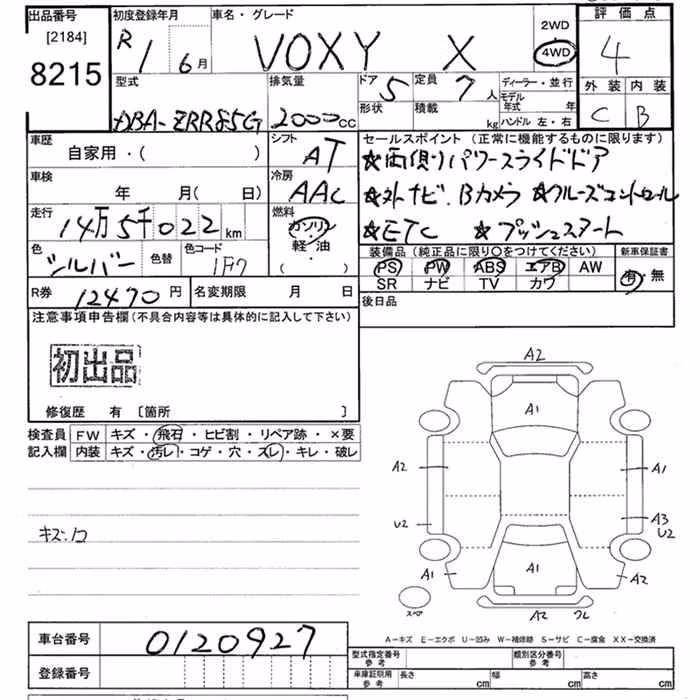 出品番号
[2184]
8215
初度登録年月
R 1 6月
車名・グレード
VOXY X
2WD
4WD
評価点
4
外装 内装
C B
型式
DBA-ZRR85G
排気量
2000cc
ドア 5
形状
定員 7人
積載 kg
ディーラー・並行
モデル年式 年
ハンドル 左・右
車歴
自家用・( )
シフト
AT
セールスポイント (正常に機能するものに限ります)
★両側パワースライドドア
★外ナビ.Bカメラ ★クルーズコントロール
★ETC ★プッシュスタート
車検
年 月( 日)
冷房
AAC
走行
14万5千022km
燃料
ガソリン
軽・油
・( )
色
シルバー
色替
色コード
1F7
装備品(純正品に限り○をつけてください)
PS PW ABS エアB AW
SR ナビ TV カワ
新車保証書
有・無
R券 12470円
名変期限 月 日
後日品
注意事項申告欄(不具合内容等は具体的に記入して下さい)
初出品
修復歴 有 [箇所 ]
検査員記入欄
FW キズ・飛石・ヒビ割・リペア跡・×要
内装 キズ・汚レ・コゲ・穴・スレ・キレ・破レ
A2
A1
A2
A1
U2
A3
U2
A1
A1
A2
スペア
A2
A-キズ E-エクボ U-凹み W-補修跡 S-サビ C-腐食 XX-交換済
車台番号
0120927
登録番号
型式指定番号
参考
類別区分番号
参考
車庫証明用
参考
長さ cm
幅 cm
高さ cm